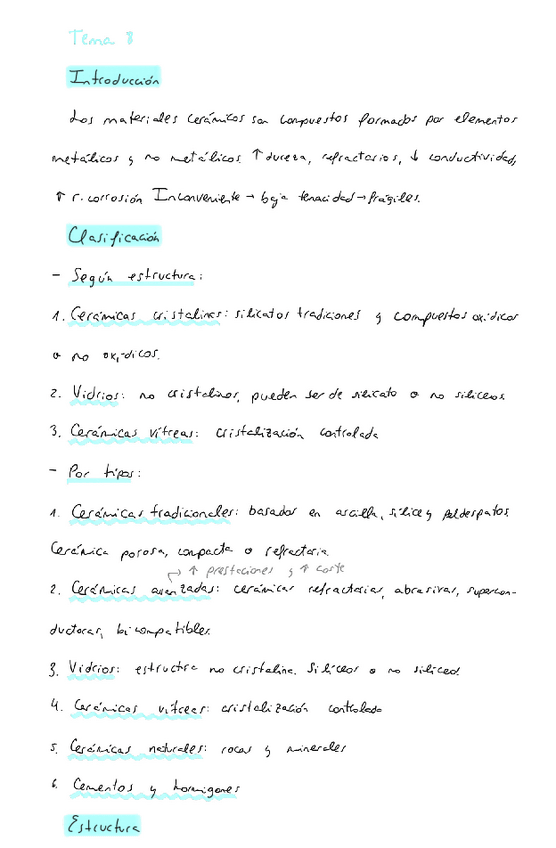 Tema 8
Introducción
Los materiales cerámicos son compuestos formados por elementos
metálicos y no metálicos. ↑ dureza, refractarios, ↓ conductividad,
↑ r. corrosión Inconveniente → baja tenacidad → frágiles.
Clasificación
- Según estructura:
1. Cerámicas cristalinas: silicatos tradiciones y compuestos oxídicos
o no oxídicos.
2. Vidrios: no cristalinos, pueden ser de silicato o no silíceos
3. Cerámicas vítreas: cristalización controlada
- Por tipos:
1. Cerámicas tradicionales: basados en arcilla, sílice y feldespatos.
Cerámica porosa, compacta o refractaria.
↑ prestaciones y ↑ coste
2. Cerámicas avanzadas: cerámicas refractarias, abrasivas, supercon-
ductoras, biocompatibles.
3. Vidrios: estructura no cristalina. Silíceos o no silíceos.
4. Cerámicas vítreas: cristalización controlada
5. Cerámicas naturales: rocas y minerales
6. Cementos y hormigones
Estructura